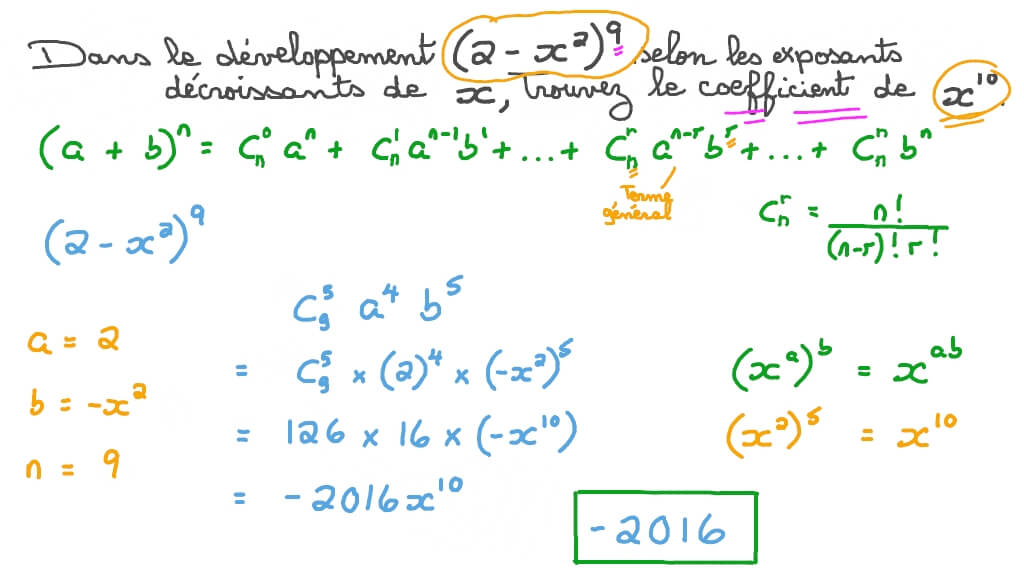 Dans le développement (2 - x²)⁹ selon les exposants
décroissants de x, trouvez le coefficient de x¹⁰.
(a + b)ⁿ = Cₙ⁰ aⁿ + Cₙ¹ aⁿ⁻¹b¹ + ... + Cₙʳ aⁿ⁻ʳbʳ + ... + Cₙⁿ bⁿ
Terme
général
Cₙʳ = n! / (n-r)! r!
(2 - x²)⁹
C₉⁵ a⁴ b⁵
a = 2
= C₉⁵ × (2)⁴ × (-x²)⁵
(xᵃ)ᵇ = xᵃᵇ
b = -x²
= 126 × 16 × (-x¹⁰)
(x²)⁵ = x¹⁰
n = 9
= - 2016x¹⁰
- 2016